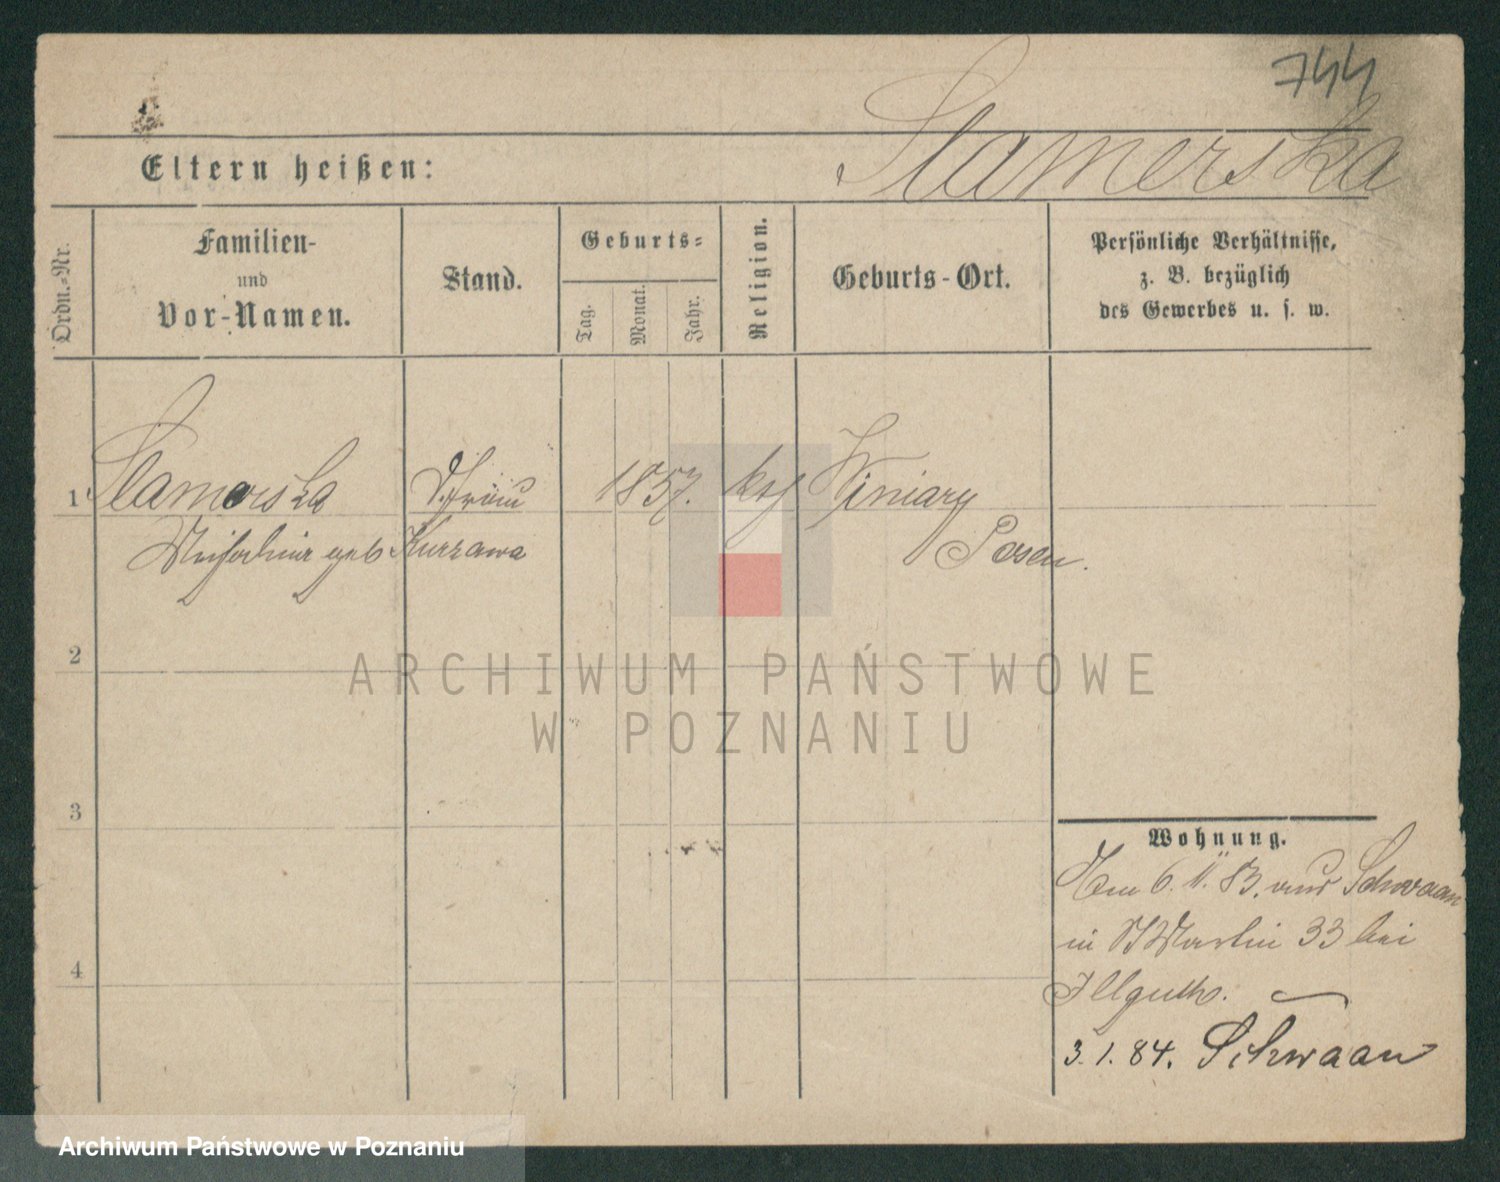 744
Eltern heißen:
Slamerska
Ordn.-Nr.
Familien-
und
Vor-Namen.
Stand.
Geburts-
Tag.
Monat.
Jahr.
Religion.
Geburts-Ort.
Persönliche Verhältnisse,
z. B. bezüglich
des Gewerbes u. s. w.
1 Slamerska 1857. kth Winiary
geb Kurzawa Posen.
2
ARCHIWUM PAŃSTWOWE
W POZNANIU
3
Wohnung.
6. 11. 83. Schwaan
in St Martin 33 bei
Illguth.
4
3. 1. 84. Schwaan
Archiwum Państwowe w Poznaniu